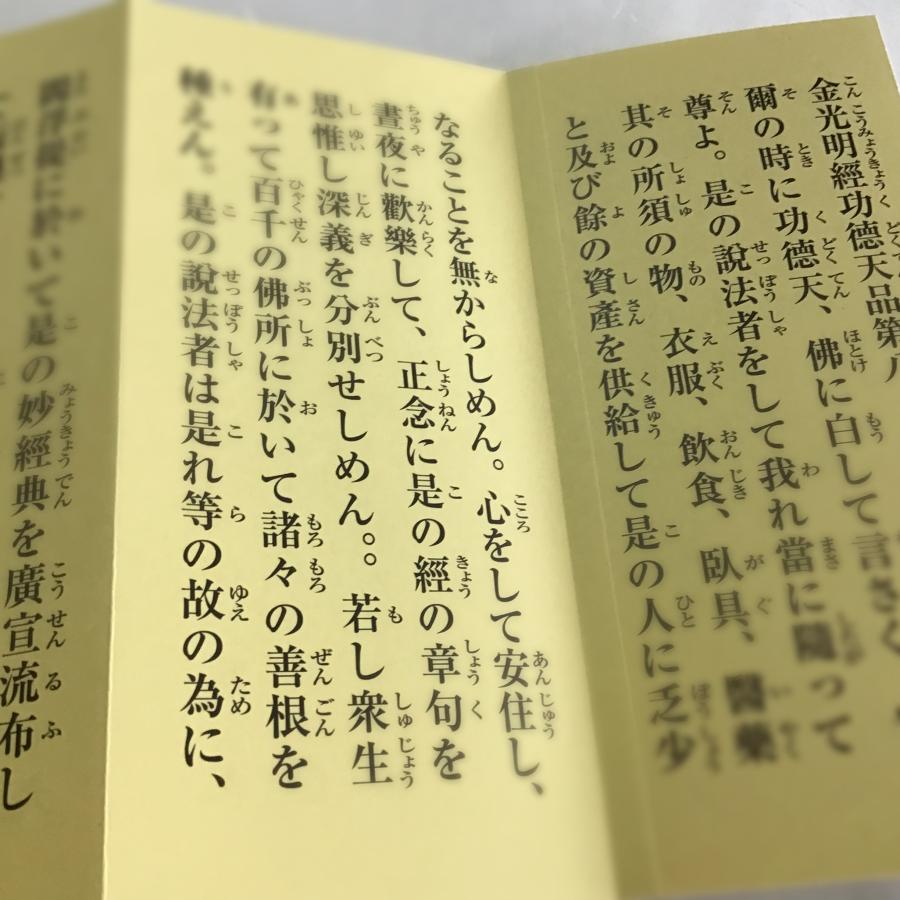 金光明經功德天品第八
爾の時に功德天、佛に白して言さく
尊よ。是の說法者をして我れ當に隨って
其の所須の物、衣服、飲食、臥具、醫藥
と及び餘の資產を供給して是の人に乏少
なることを無からしめん。心をして安住し、
晝夜に歡樂して、正念に是の經の章句を
思惟し深義を分別せしめん。。若し衆生
有って百千の佛所に於いて諸々の善根を
種えん。是の說法者は是れ等の故の為に、
閻浮提に於いて是の妙經典を廣宣流布し